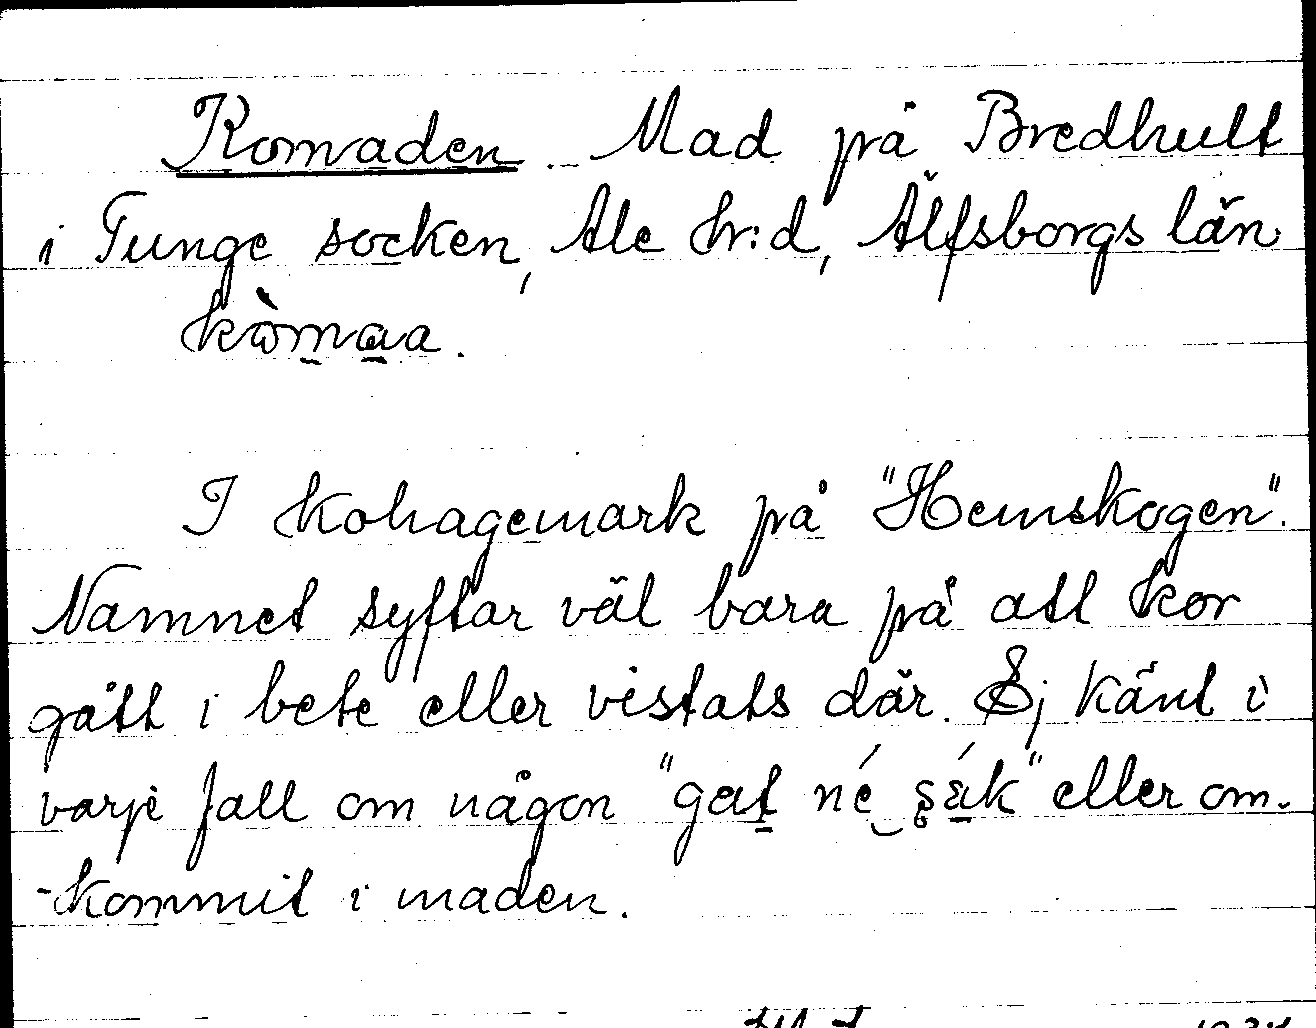 Komaden. Mad på Bredhult
i Tunge socken, Ale hr:d, Älfsborgs län
kòmaa.
I kohagemark på "Hemskogen".
Namnet syftar väl bara på att kor
gått i bete eller vistats där. Ej känt i
varje fall om någon "gat né sák" eller om-
-kommit i maden.